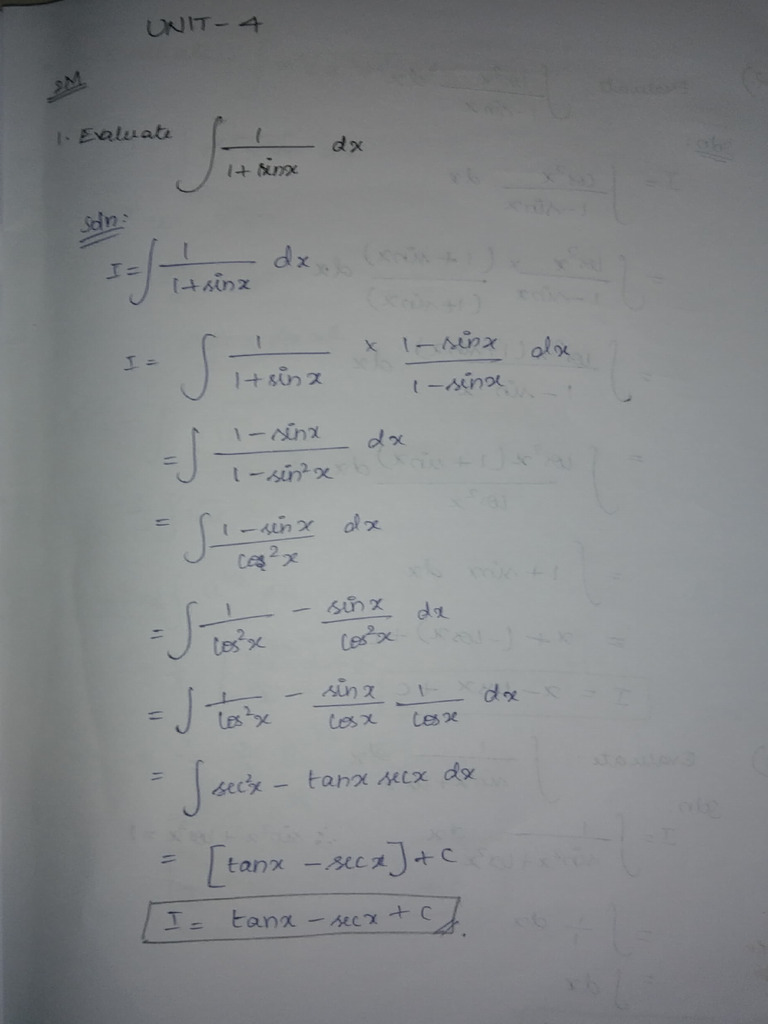 UNIT-4
2M
1. Evaluate ∫ 1/(1+sinx) dx
Soln:
I = ∫ 1/(1+sinx) dx
I = ∫ 1/(1+sinx) × (1-sinx)/(1-sinx) dx
= ∫ (1-sinx)/(1-sin²x) dx
= ∫ (1-sinx)/(cos²x) dx
= ∫ 1/cos²x - sinx/cos²x dx
= ∫ 1/cos²x - sinx/cosx 1/cosx dx
= ∫ sec²x - tanx secx dx
= [tanx - secx] + C
I = tanx - secx + C